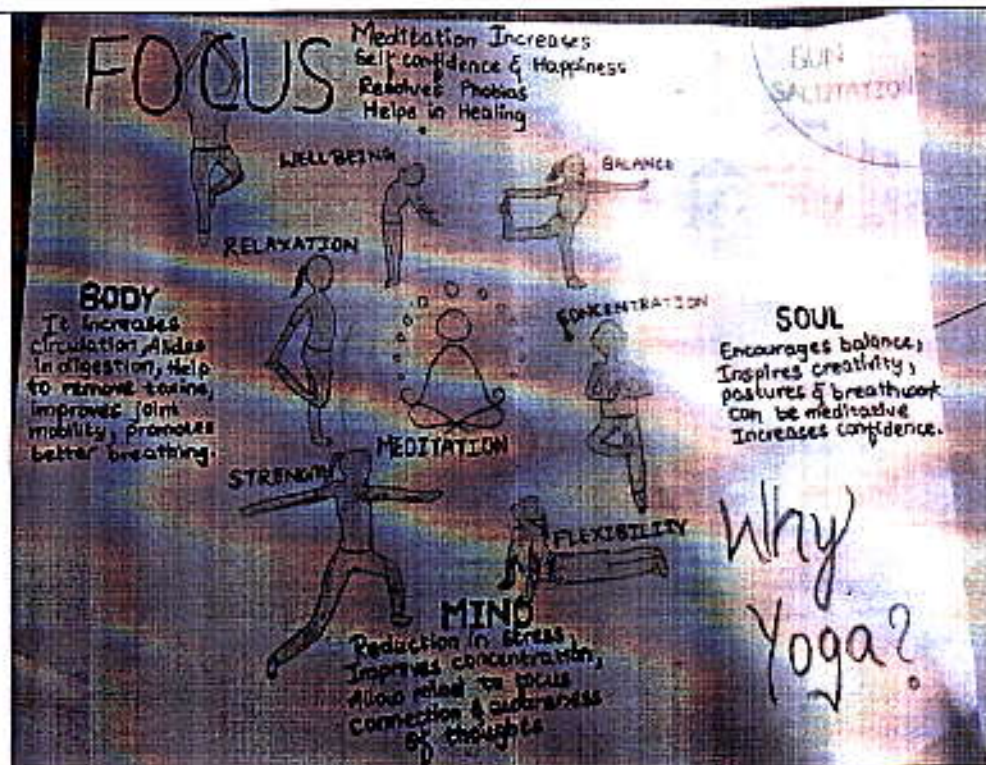 FOCUS
Meditation Increases
Self confidence & Happiness
Resolves Phobias
Helps in Healing
SUN
SALUTATION
WELLBEING
BALANCE
RELAXATION
CONCENTRATION
BODY
It increases
circulation, Aides
in digestion, Help
to remove toxins,
improves joint
mobility, promotes
better breathing.
SOUL
Encourages balance,
Inspires creativity,
postures & breathwork
can be meditative
Increases confidence.
MEDITATION
STRENGTH
FLEXIBILITY
MIND
Reduction in stress,
Improves concentration,
Allow mind to focus
Connection & awareness
of thoughts
Why
Yoga?